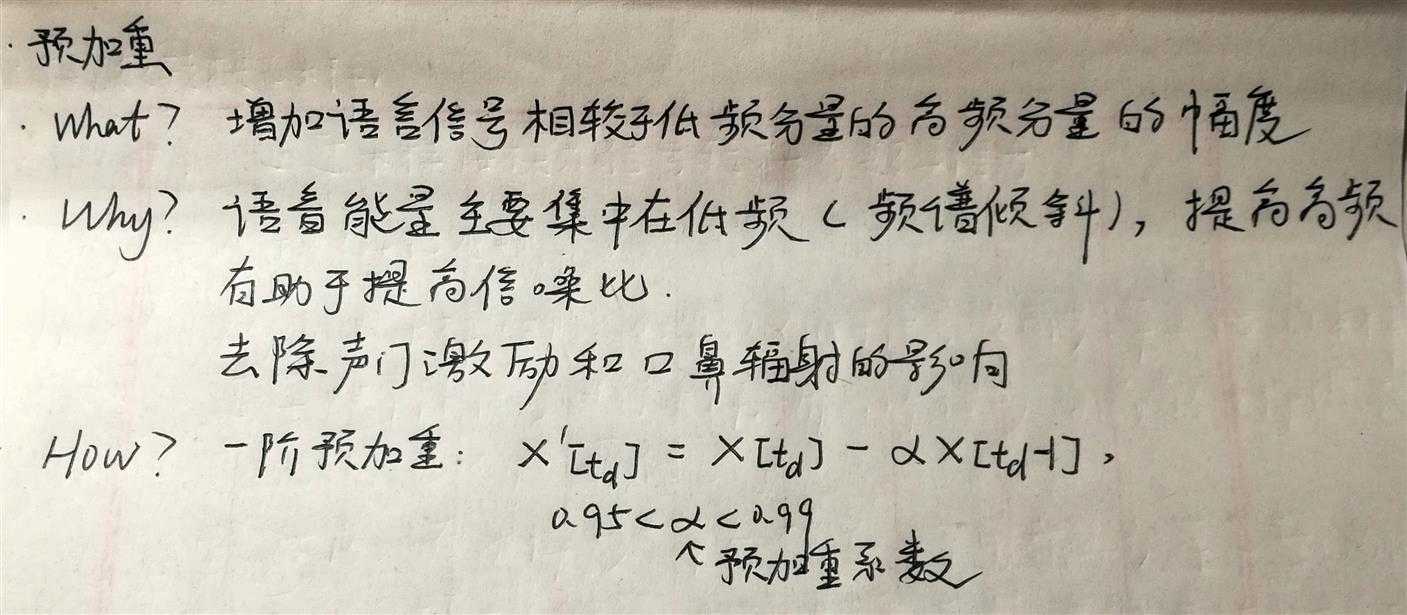 · 预加重
· What? 增加语言信号相较于低频分量的高频分量的幅度
· Why? 语音能量主要集中在低频(频谱倾斜),提高高频
有助于提高信噪比.
去除声门激励和口鼻辐射的影响
How? 一阶预加重: X'[t_d] = X[t_d] - αX[t_d-1],
0.95<α<0.99
↖预加重系数